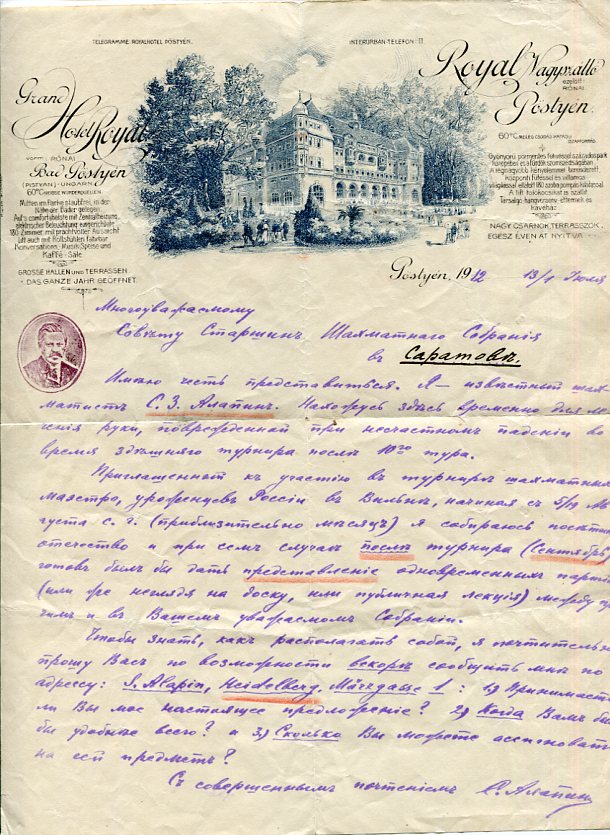 TELEGRAMME: ROYALHOTEL PÖSTYÉN.
INTERURBAN-TELEFON: 11
Grand Hotel Royal
vorm: RÓNAI
Bad Pöstyén
(PISTYAN) - UNGARN
60°C HEISSE WUNDERQUELLEN
Mitten im Parke staubfrei, in der
Nähe der Bäder gelegen
Auf's comfortabelste mit Zentralheizung,
elektrischer Beleuchtung eingerichtete
180 Zimmer mit prachtvoller Aussicht
Lift auch mit Rollstühlen fahrbar
Konversations-, Musik-, Speise und
Kaffé-Säle
GROSSE HALLEN UND TERRASSEN
DAS GANZE JAHR GEÖFFNET.
Royal Nagyszálló
ezelőtt:
RÓNAI
Pöstyén.
60°C MELEG CSODÁS HATÁSÚ
Gyönyörű pormentes fekvéssel százados park
közepében és a fürdők szomszédságában
A legnagyobb kényelemmel berendezett
Központi fűtéssel és villamos
világítással ellátott 180 szoba pompás kilátással
A lift tolókocsival is
Társalgó-, hangverseny-, éttermek és
kávéház
NAGY CSARNOK, TERRASSZOK
EGÉSZ ÉVEN ÁT NYITVA
Pöstyén, 1912 13/1 Іюля
Многоуважаемому
Совѣту Старшинъ Шахматнаго Собранія
въ Саратовѣ.
Имѣю честь представиться. Я — извѣстный шах-
матистъ С. З. Алапинъ. Нахожусь здѣсь временно для лѣ-
ченія руки, поврежденной при несчастномъ паденіи во
время здѣшняго турнира послѣ 10го тура.
Приглашенный къ участію въ турнирѣ шахматныхъ
маэстро, уроженцевъ Россіи въ Вильнѣ, начиная съ 5/19 Ав-
густа с. г. (приблизительно мѣсяцъ) я собираюсь посѣтить
отечество и при семъ случаѣ послѣ турнира (Сентябрь)
готовъ былъ бы дать представленіе одновременныхъ партій
(или же не глядя на доску, или публичная лекція) между про-
чимъ и въ Вашемъ уважаемомъ Собраніи.
Чтобы знать, какъ располагать собой, я почтительно
прошу Васъ по возможности вскорѣ сообщить мнѣ по
адрессу: S. Alapin, Heidelberg. Märzgasse 1 : 1) Принимаете
ли Вы мое настоящее предложеніе? 2) Когда Вамъ бы-
бы удобнѣе всего? и 3) Сколько Вы можете ассигновать
на сей предметъ?
Съ совершеннымъ почтеніемъ С. Алапинъ